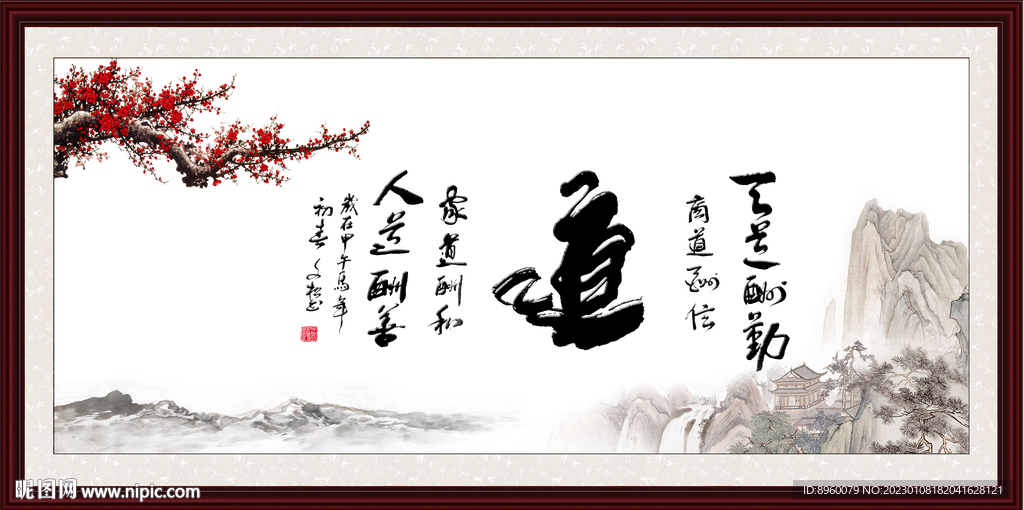 天道酬勤
商道酬信
道
家道酬和
人道酬善
歲在甲午馬年
初春
昵图网 www.nipic.com
ID:8960079 NO:20230108182041628121